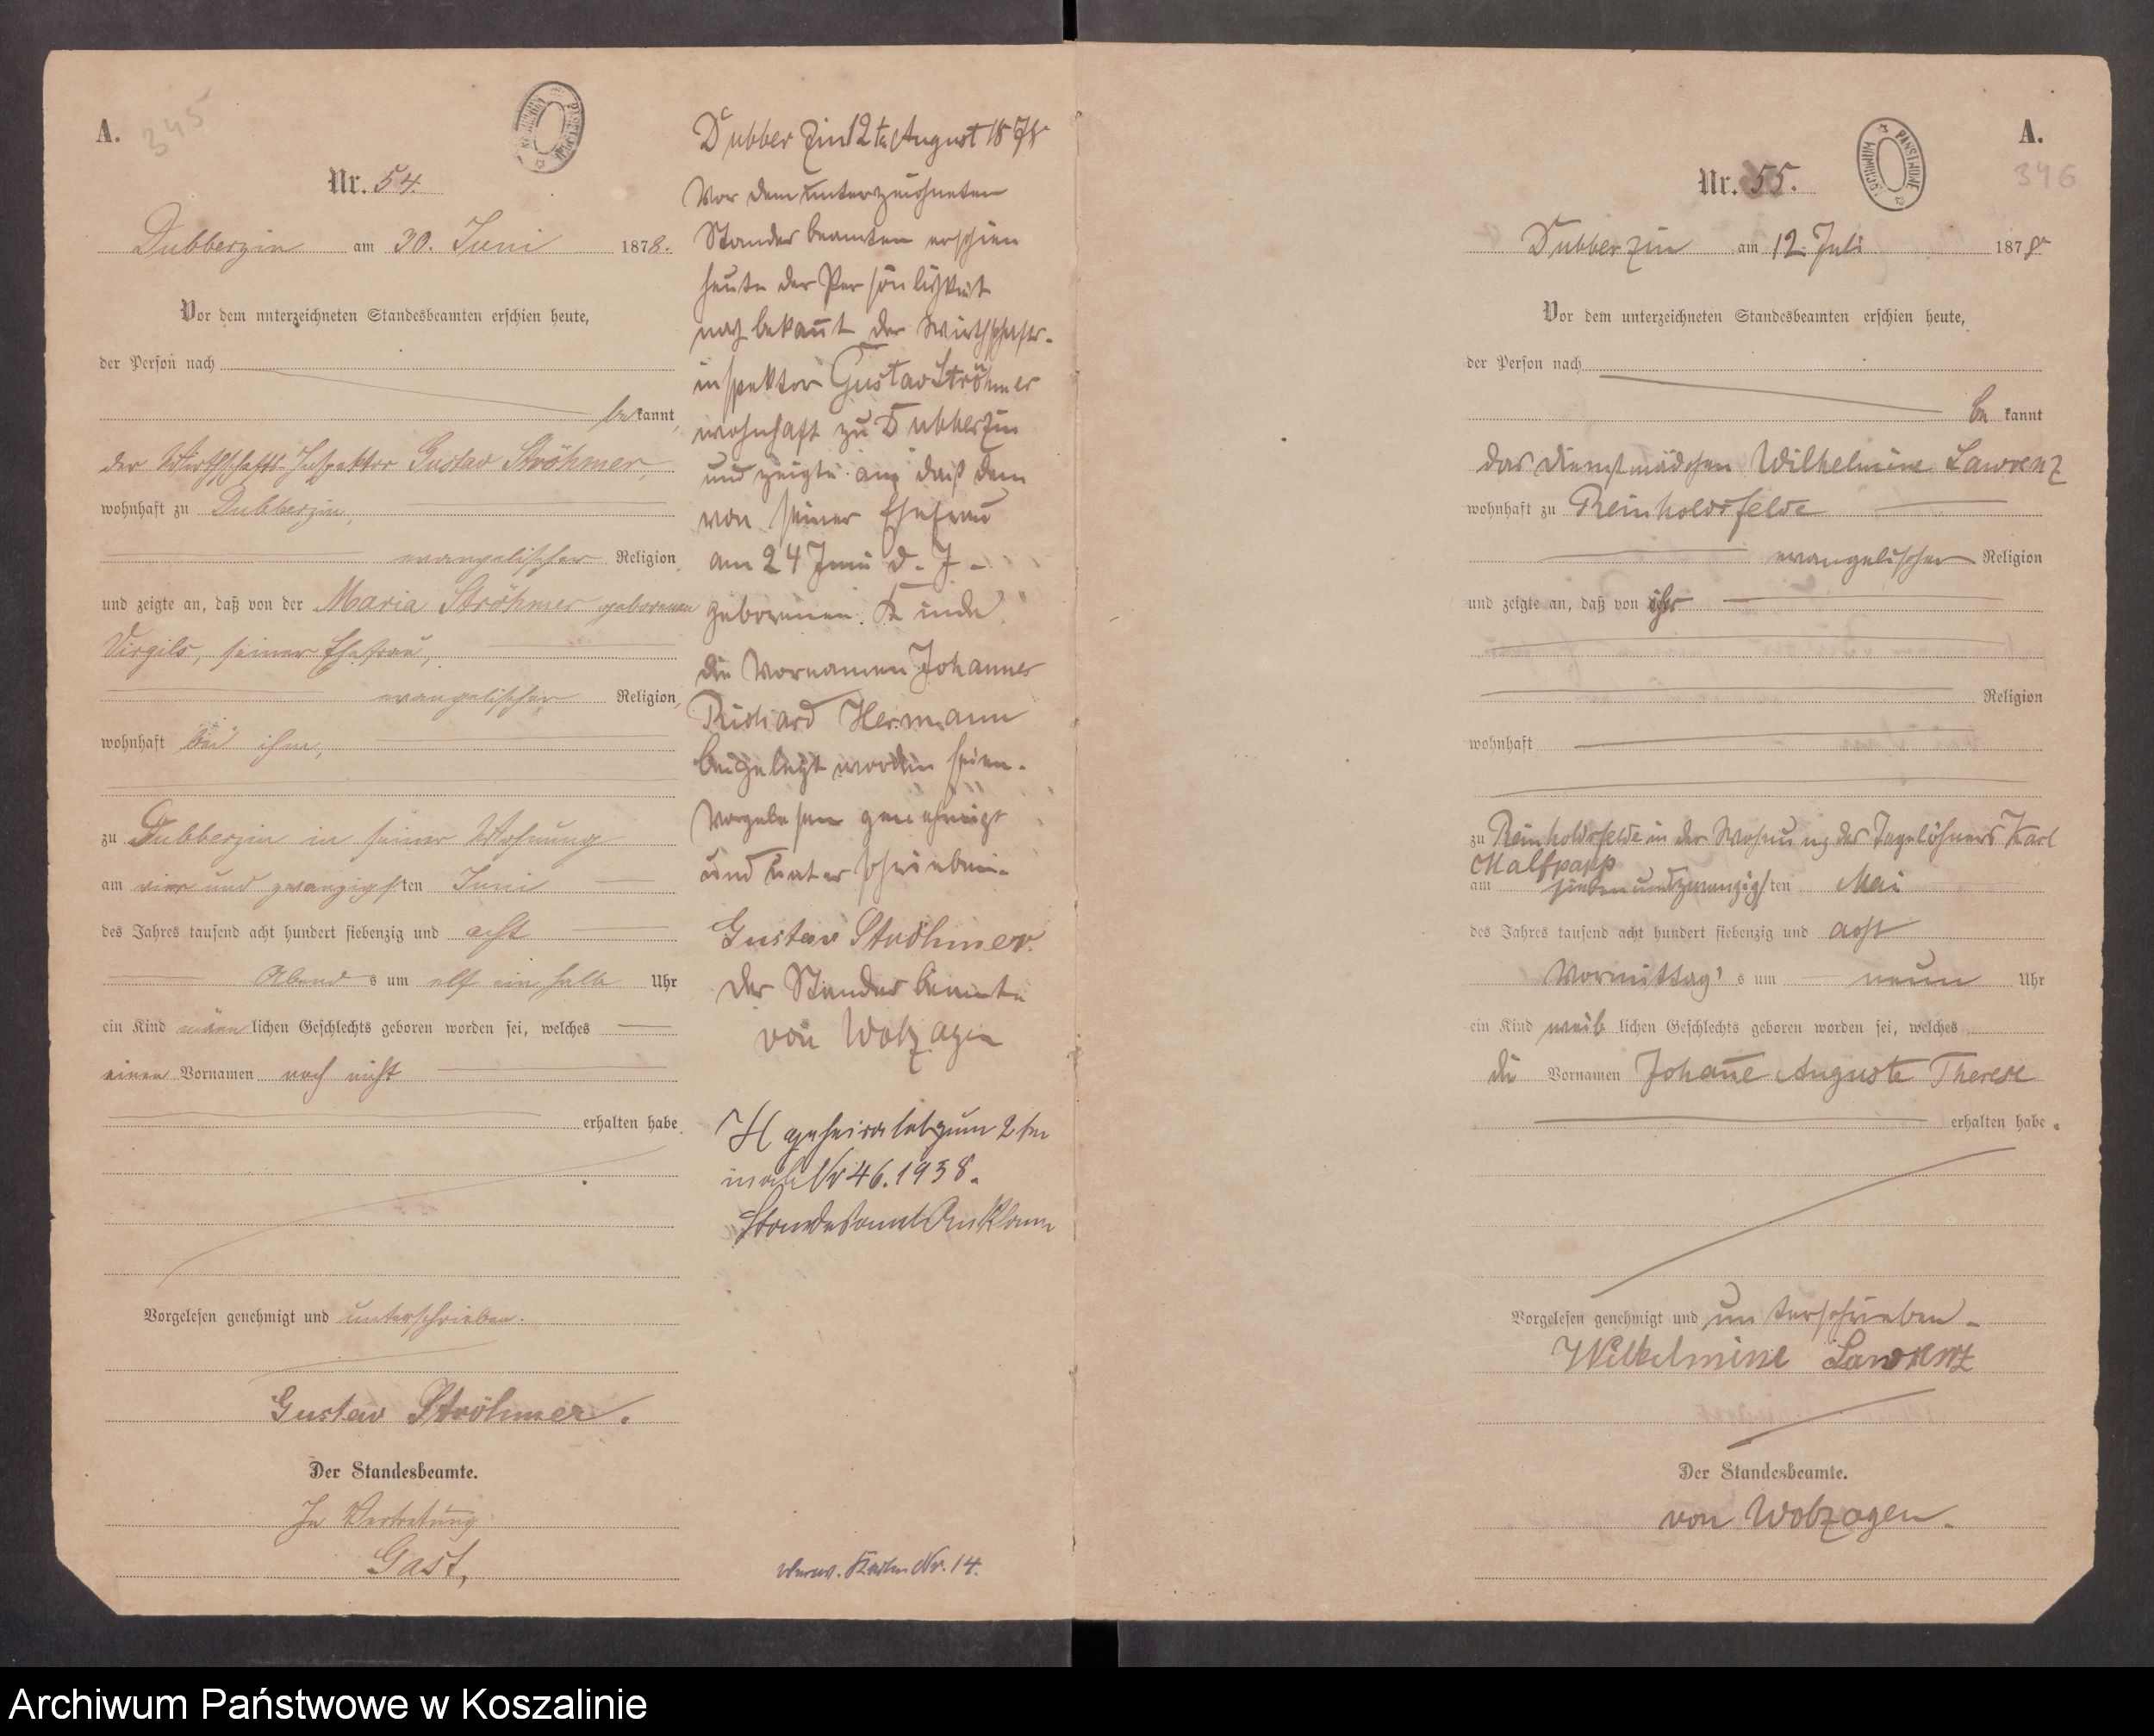 A.
345
Nr. 54.
Dubberzin am 30. Juni 1878.
Vor dem unterzeichneten Standesbeamten erschien heute,
der Person nach
be kannt,
der Wirthschafts-Inspektor Gustav Ströhmer,
wohnhaft zu Dubberzin,
evangelischer Religion,
und zeigte an, daß von der Maria Ströhmer geborenen
Virgils, seiner Ehefrau,
evangelischer Religion,
wohnhaft bei ihm,
zu Dubberzin in seiner Wohnung
am vier und zwanzigsten Juni
des Jahres tausend acht hundert siebenzig und acht
Abend s um elf ein halb Uhr
ein Kind männlichen Geschlechts geboren worden sei, welches
einen Vornamen noch nicht
erhalten habe.
Vorgelesen genehmigt und unterschrieben.
Gustav Ströhmer.
Der Standesbeamte.
In Vertretung
Gast,
Dubberzin 12ten August 1878
Vor dem unterzeichneten
Standesbeamten erschien
heute der Persönlichkeit
nach bekannt der Wirthschafts-
inspektor Gustav Ströhmer
wohnhaft zu Dubberzin
und zeigte an, daß dem
von seiner Ehefrau
am 24 Juni d. J.
geborenen Kinde
die Vornamen Johannes
Richard Hermann
beigelegt worden seien.
Vorgelesen genehmigt
und unterschrieben.
Gustav Ströhmer.
Der Standesbeamte
von Wolzogen
H geheiratet zum 2ten
mal Nr 46. 1938.
Standesamt Anklam
Karten Nr. 14.
A.
346
Nr. 55.
Dubberzin am 12. Juli 1878
Vor dem unterzeichneten Standesbeamten erschien heute,
der Person nach
be kannt
das Dienstmädchen Wilhelmine Lawrenz
wohnhaft zu Reinholdsfelde
evangelischer Religion
und zeigte an, daß von ihr
Religion
wohnhaft
zu Reinholdsfelde in der Wohnung des Tagelöhners Karl
Malfpapp
am sieben und zwanzigsten Mai
des Jahres tausend acht hundert siebenzig und acht
Vormittag s um neun Uhr
ein Kind weiblichen Geschlechts geboren worden sei, welches
die Vornamen Johanne Auguste Therese
erhalten habe.
Vorgelesen genehmigt und unterschrieben.
Wilhelmine Lawrenz
Der Standesbeamte.
von Wolzogen.
Archiwum Państwowe w Koszalinie